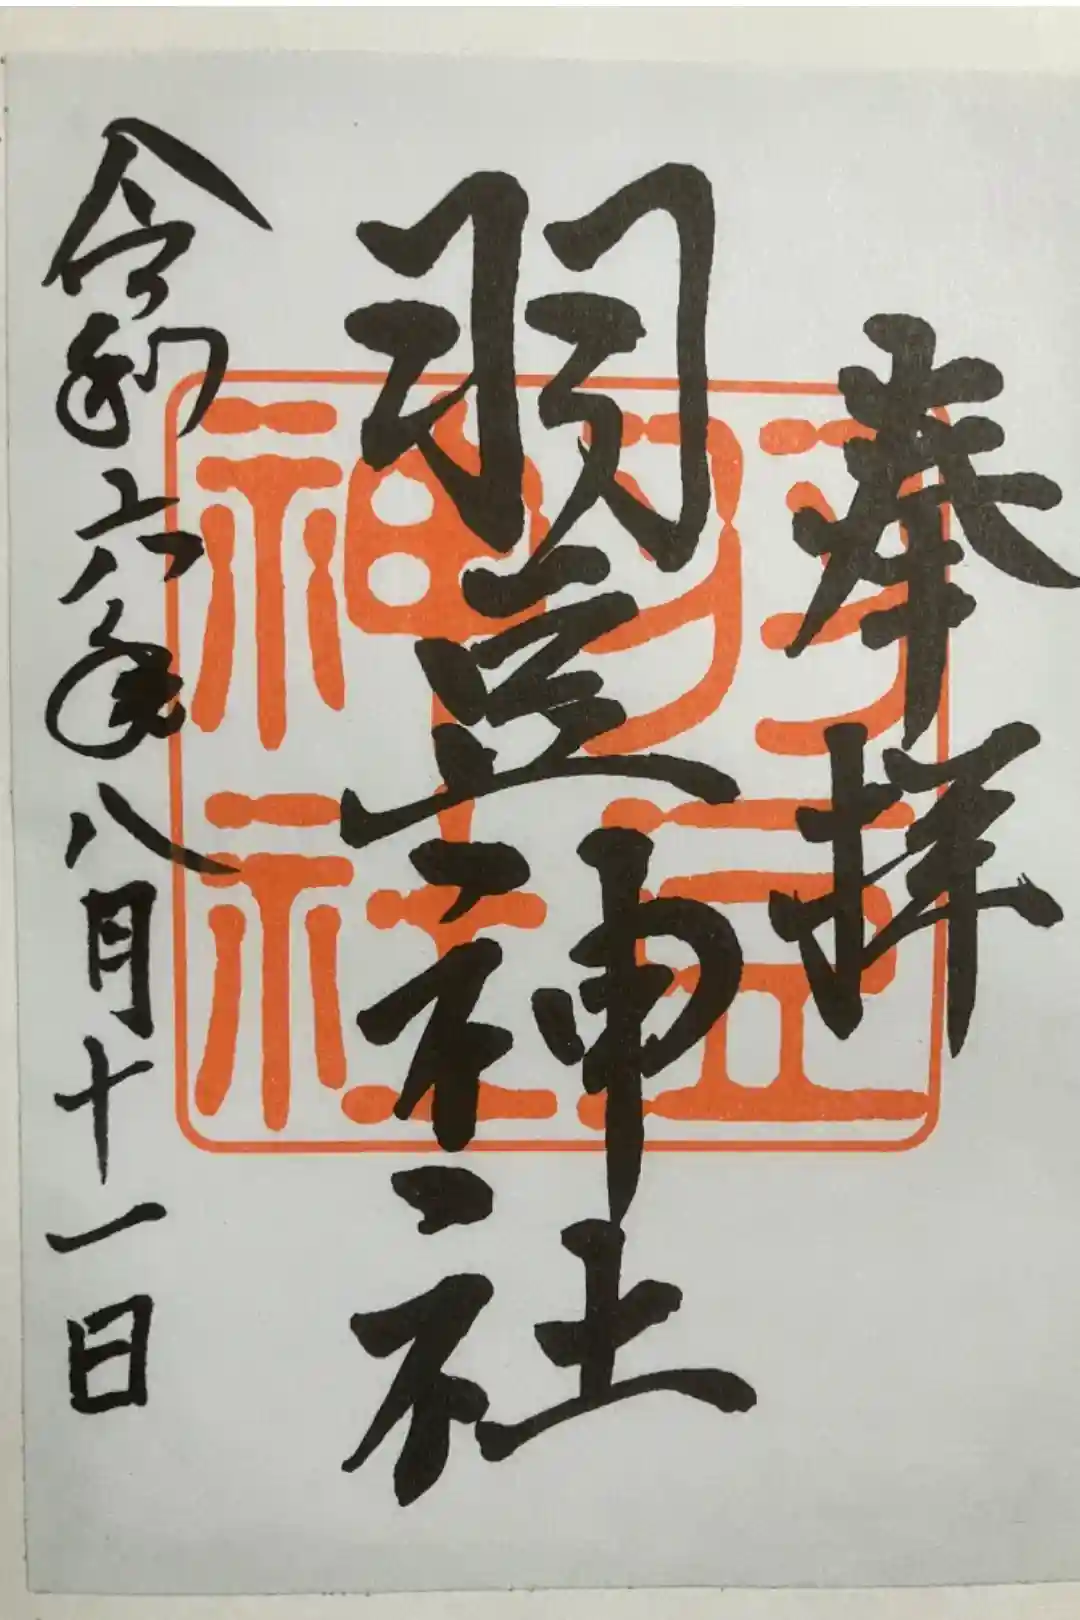 奉拝
羽豆神社
羽豆神社
令和六年八月十一日